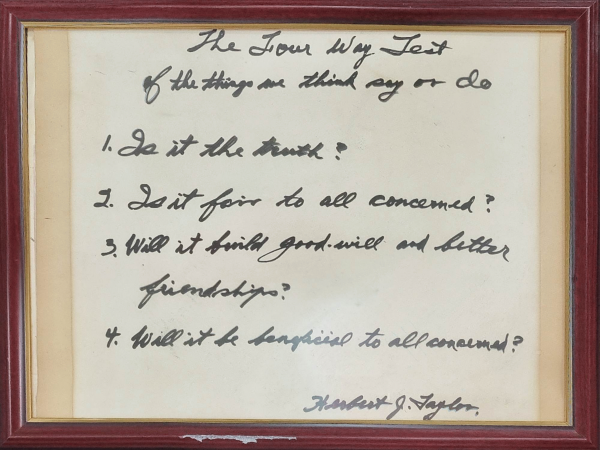 The Four Way Test
of the things we think say or do
1. Is it the truth?
2. Is it fair to all concerned?
3. Will it build good-will and better
friendships?
4. Will it be beneficial to all concerned?
Herbert J. Taylor.